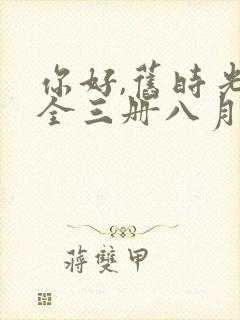 你好,舊時光
全三册八月
蔣雙甲